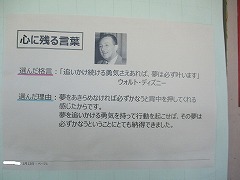 心に残る言葉
選んだ格言：「追いかけ続ける勇気さえあれば、夢は必ず叶います」
ウォルト・ディズニー
選んだ理由：夢をあきらめなければ必ずかなうと背中を押してくれる
感じだからです。
夢を追いかける勇気を持って行動を起こせば、その夢は
必ずかなうということにとても納得できました。